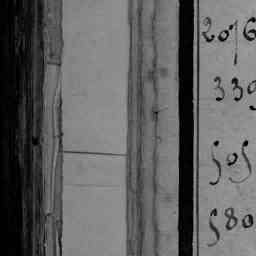 2076
339
505
580